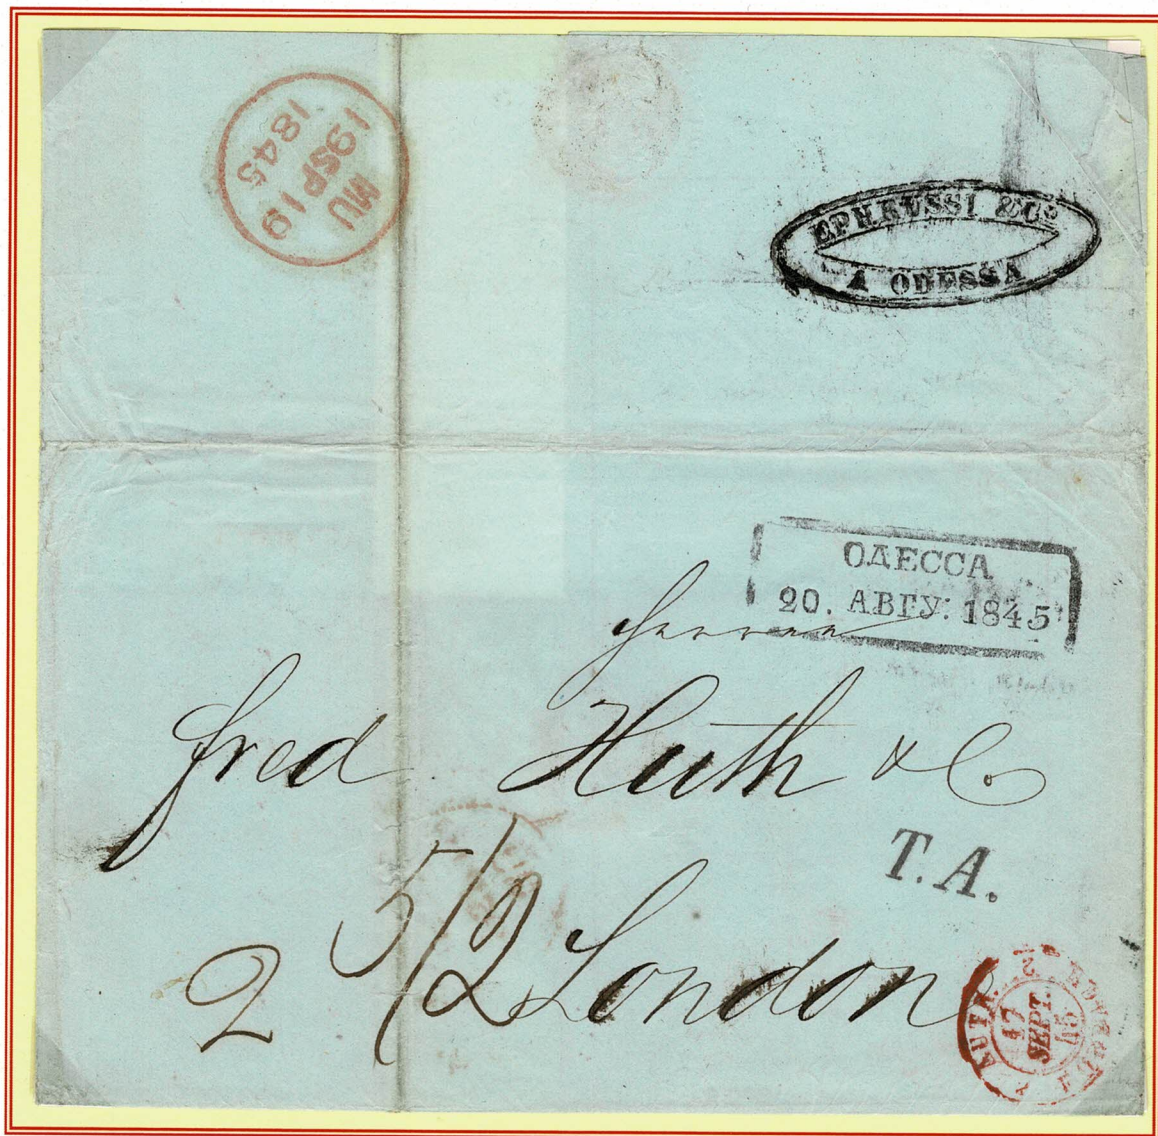 MU
19 SP 19
1845
EPHRUSSI & Cº
A ODESSA
ОДЕССА
20. АВГУ. 1845
Herren
fred Huth & Co
T.A.
5/2
2 London
AUTR. 2
17
SEPT.
45